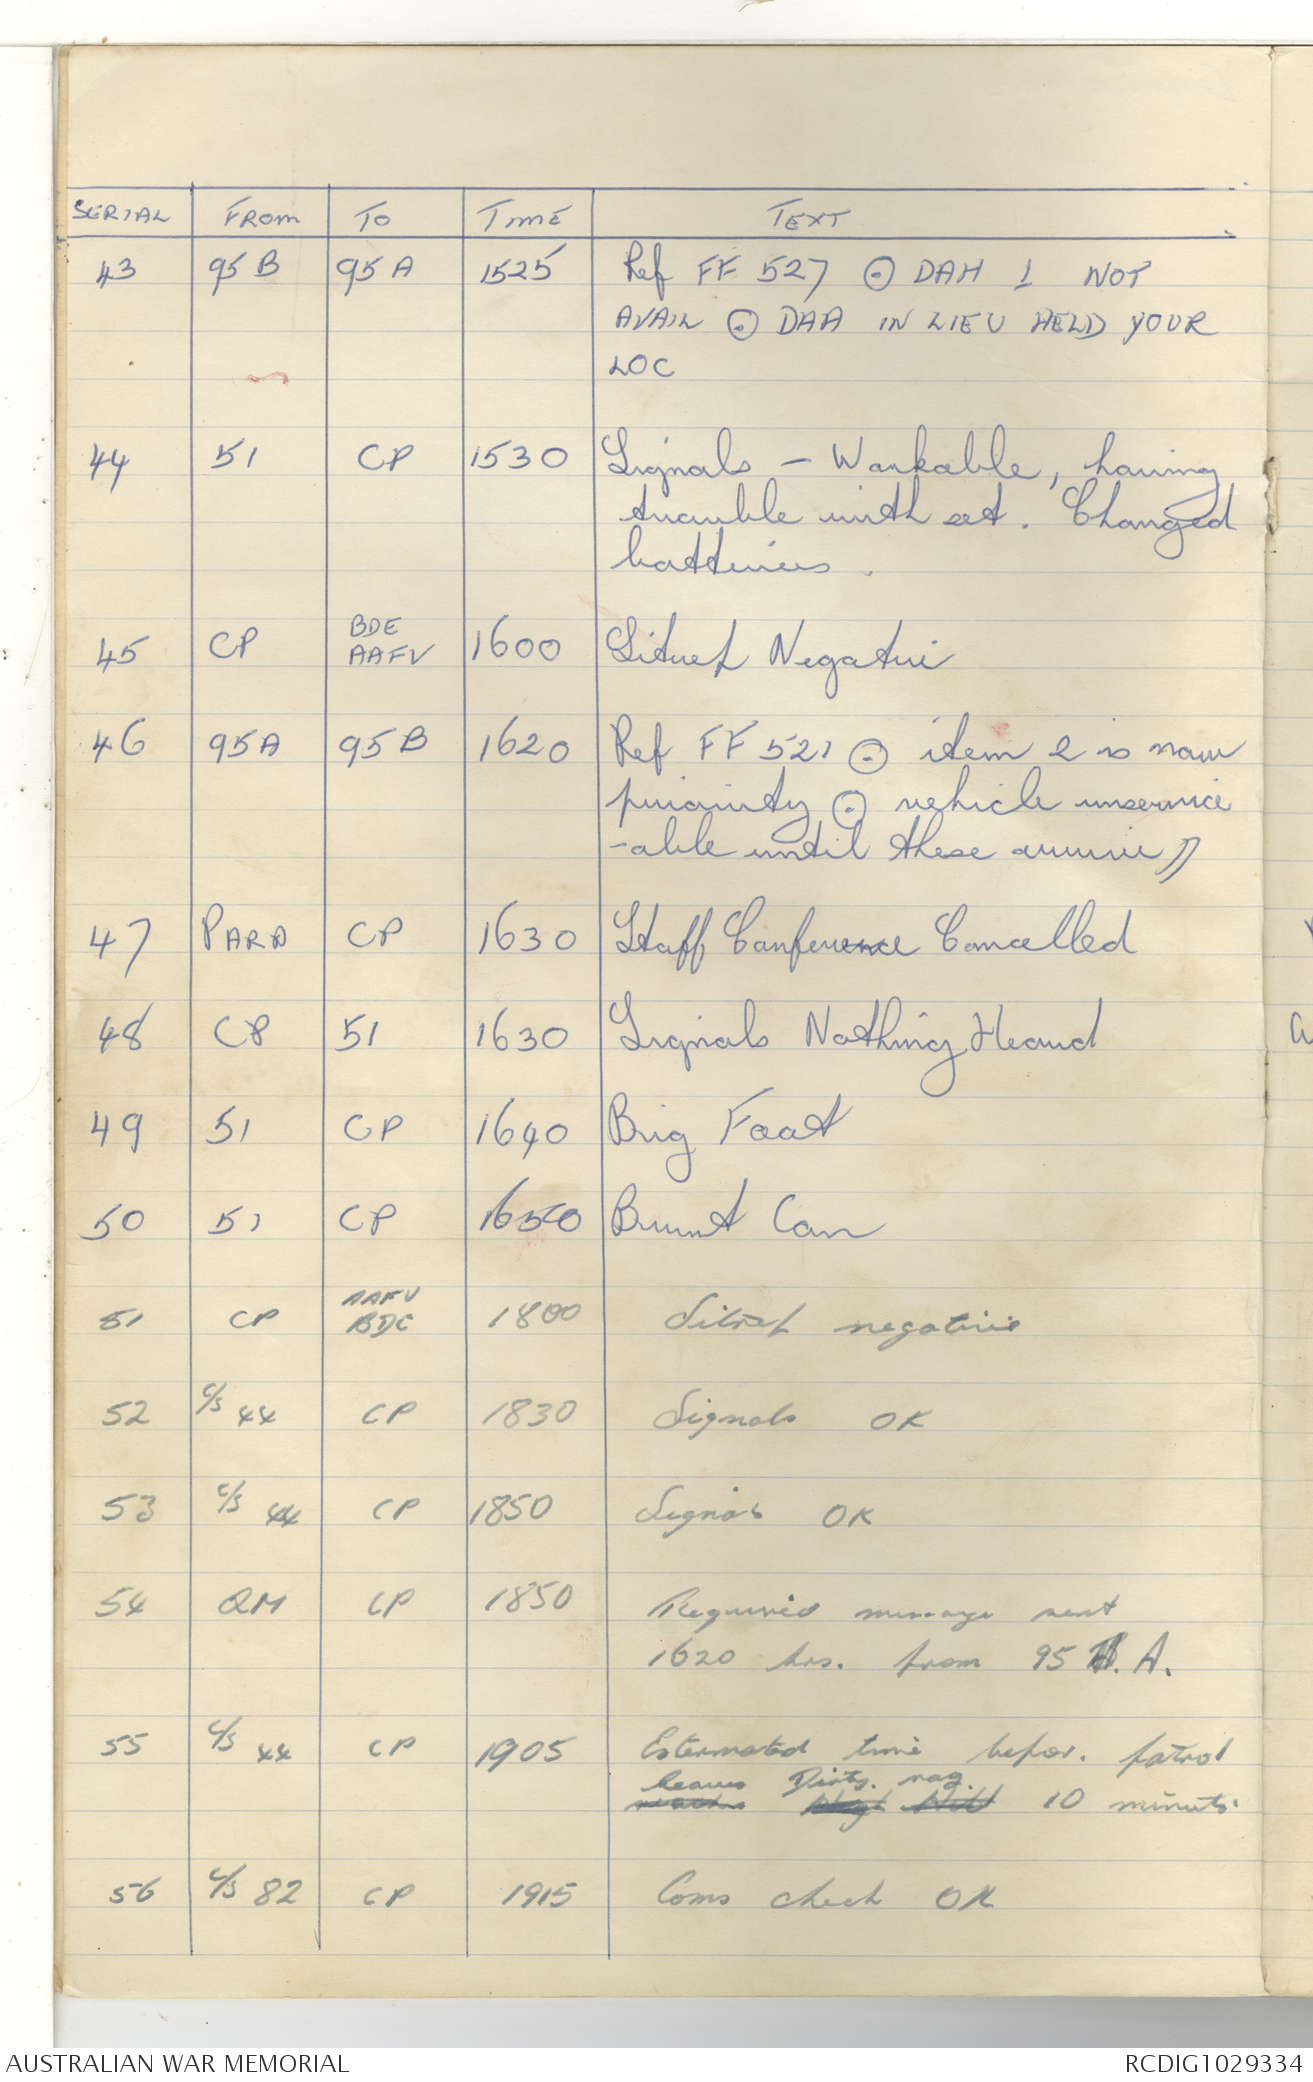 SERIAL FROM TO TIME TEXT
43 95B 95A 1525 Ref FF 527 ⊙ DAH 1 NOT
AVAIL ⊙ DAA IN LIEU HELD YOUR
LOC
44 51 CP 1530 Signals - Workable, having
trouble with set. Changed
batteries.
45 CP BDE AAFV 1600 Sitrep Negative
46 95A 95B 1620 Ref FF 521 ⊙ item 2 is now
priority ⊙ vehicle unservice
-able until these arrive //
47 PARA CP 1630 Staff Conference Cancelled
48 CP 51 1630 Signals Nothing Heard
49 51 CP 1640 Big Foot
50 51 CP 1650 Burnt Can
51 CP AAFV BDE 1800 Sitrep negative
52 C/S 44 CP 1830 Signals OK
53 C/S 44 CP 1850 Signals OK
54 QM CP 1850 Required message sent
1620 hrs. from 95 A.
55 C/S 44 CP 1905 Estermated time befor. patrol
leaves Dirty. rag. 10 minuts.
56 C/S 82 CP 1915 Coms check OK
AUSTRALIAN WAR MEMORIAL RCDIG1029334